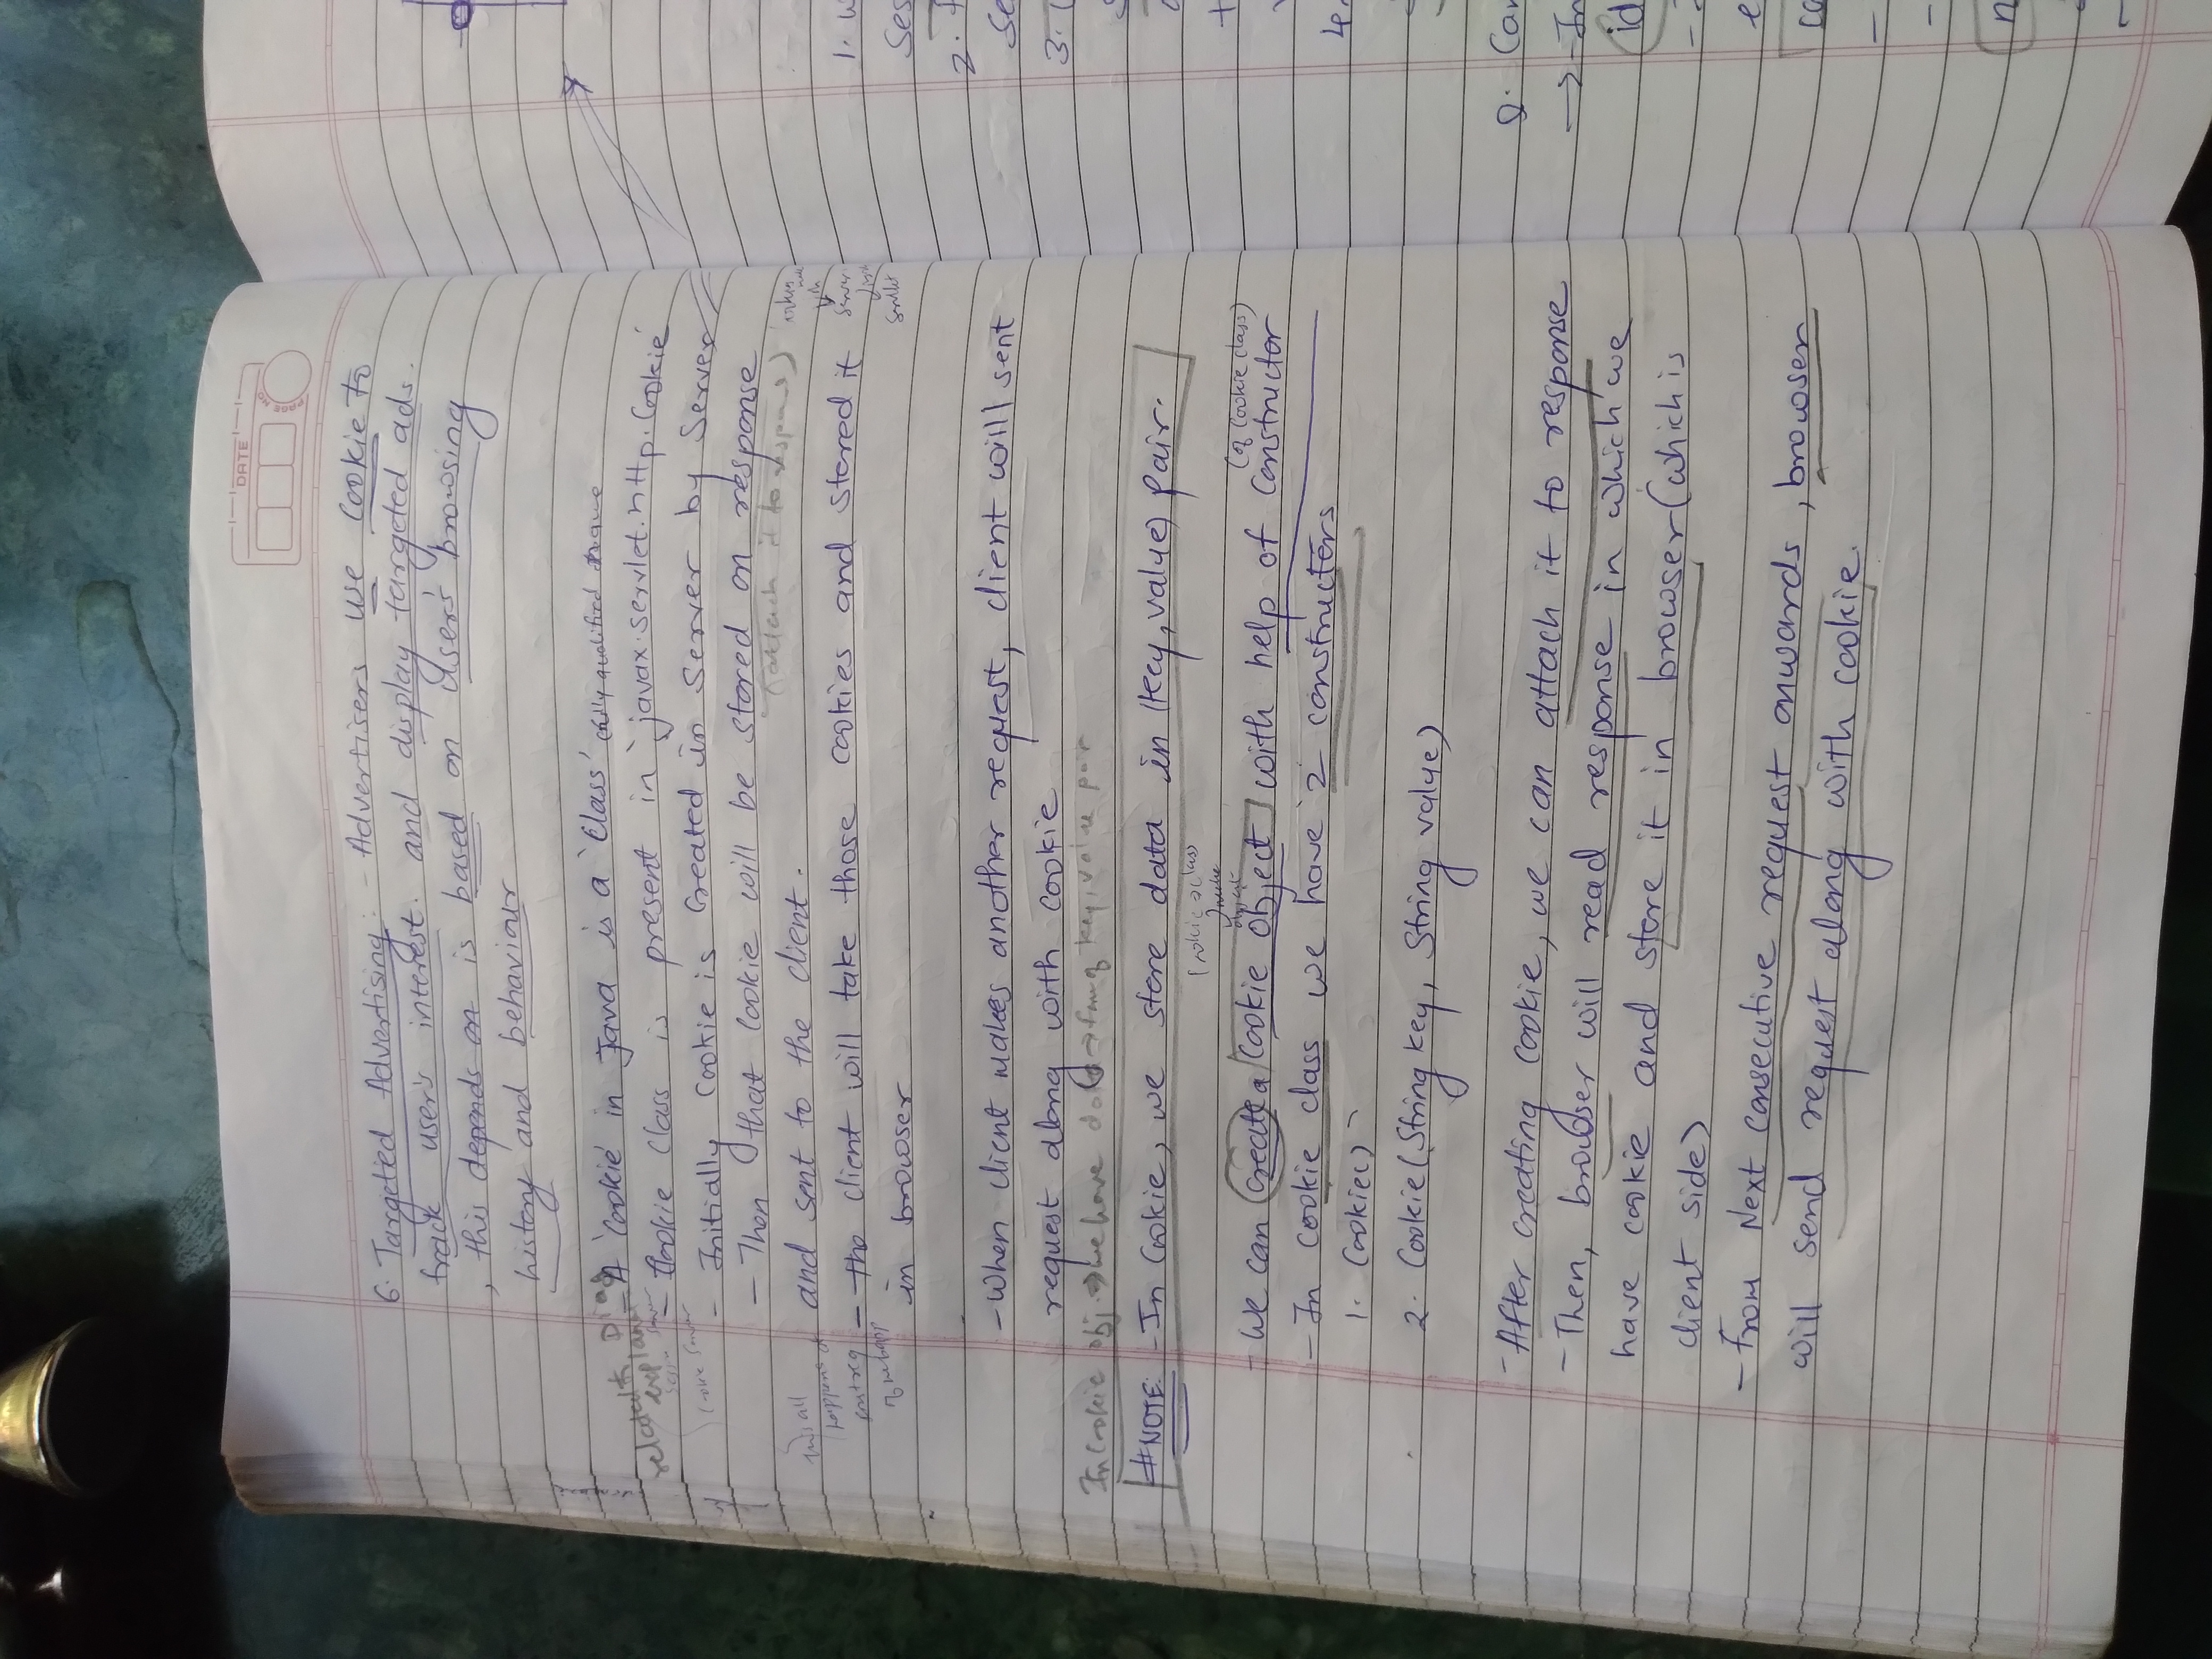 DATE
PAGE NO
6. Targeted Advertising: - Advertisers use cookie to
track user's interest. and display targeted ads.
, this depends on is based on user's browsing
history and behaviour
related to Diag
- A 'Cookie' in Java is a 'Class' (fully qualified
- Cookie class is present in 'javax.servlet.http.Cookie'
- Initially cookie is created in server by server
- Then that cookie will be stored on response
(attach it to response)
and sent to the client.
this all
happens
- the client will take those cookies and stored it
server
servlet
in browser
- When client makes another request, client will sent
request along with cookie
In cookie obj. → we have data → form of key, value pair
#NOTE: - In Cookie, we store data in (key, value) pair.
(cookie → class)
object
(of cookie class)
- We can create a cookie object with help of constructor
- In cookie class we have '2' constructors
1. Cookie()
2. Cookie(String key, String value)
- After creating cookie, we can attach it to response
- Then, browser will read response in which we
have cookie and store it in browser (which is
client side)
- from Next consecutive request onwards, browser
will send request along with cookie.
1. W
Ses
2.
Se
3.
4.
Q. Can
→ - In
id
e
co
n